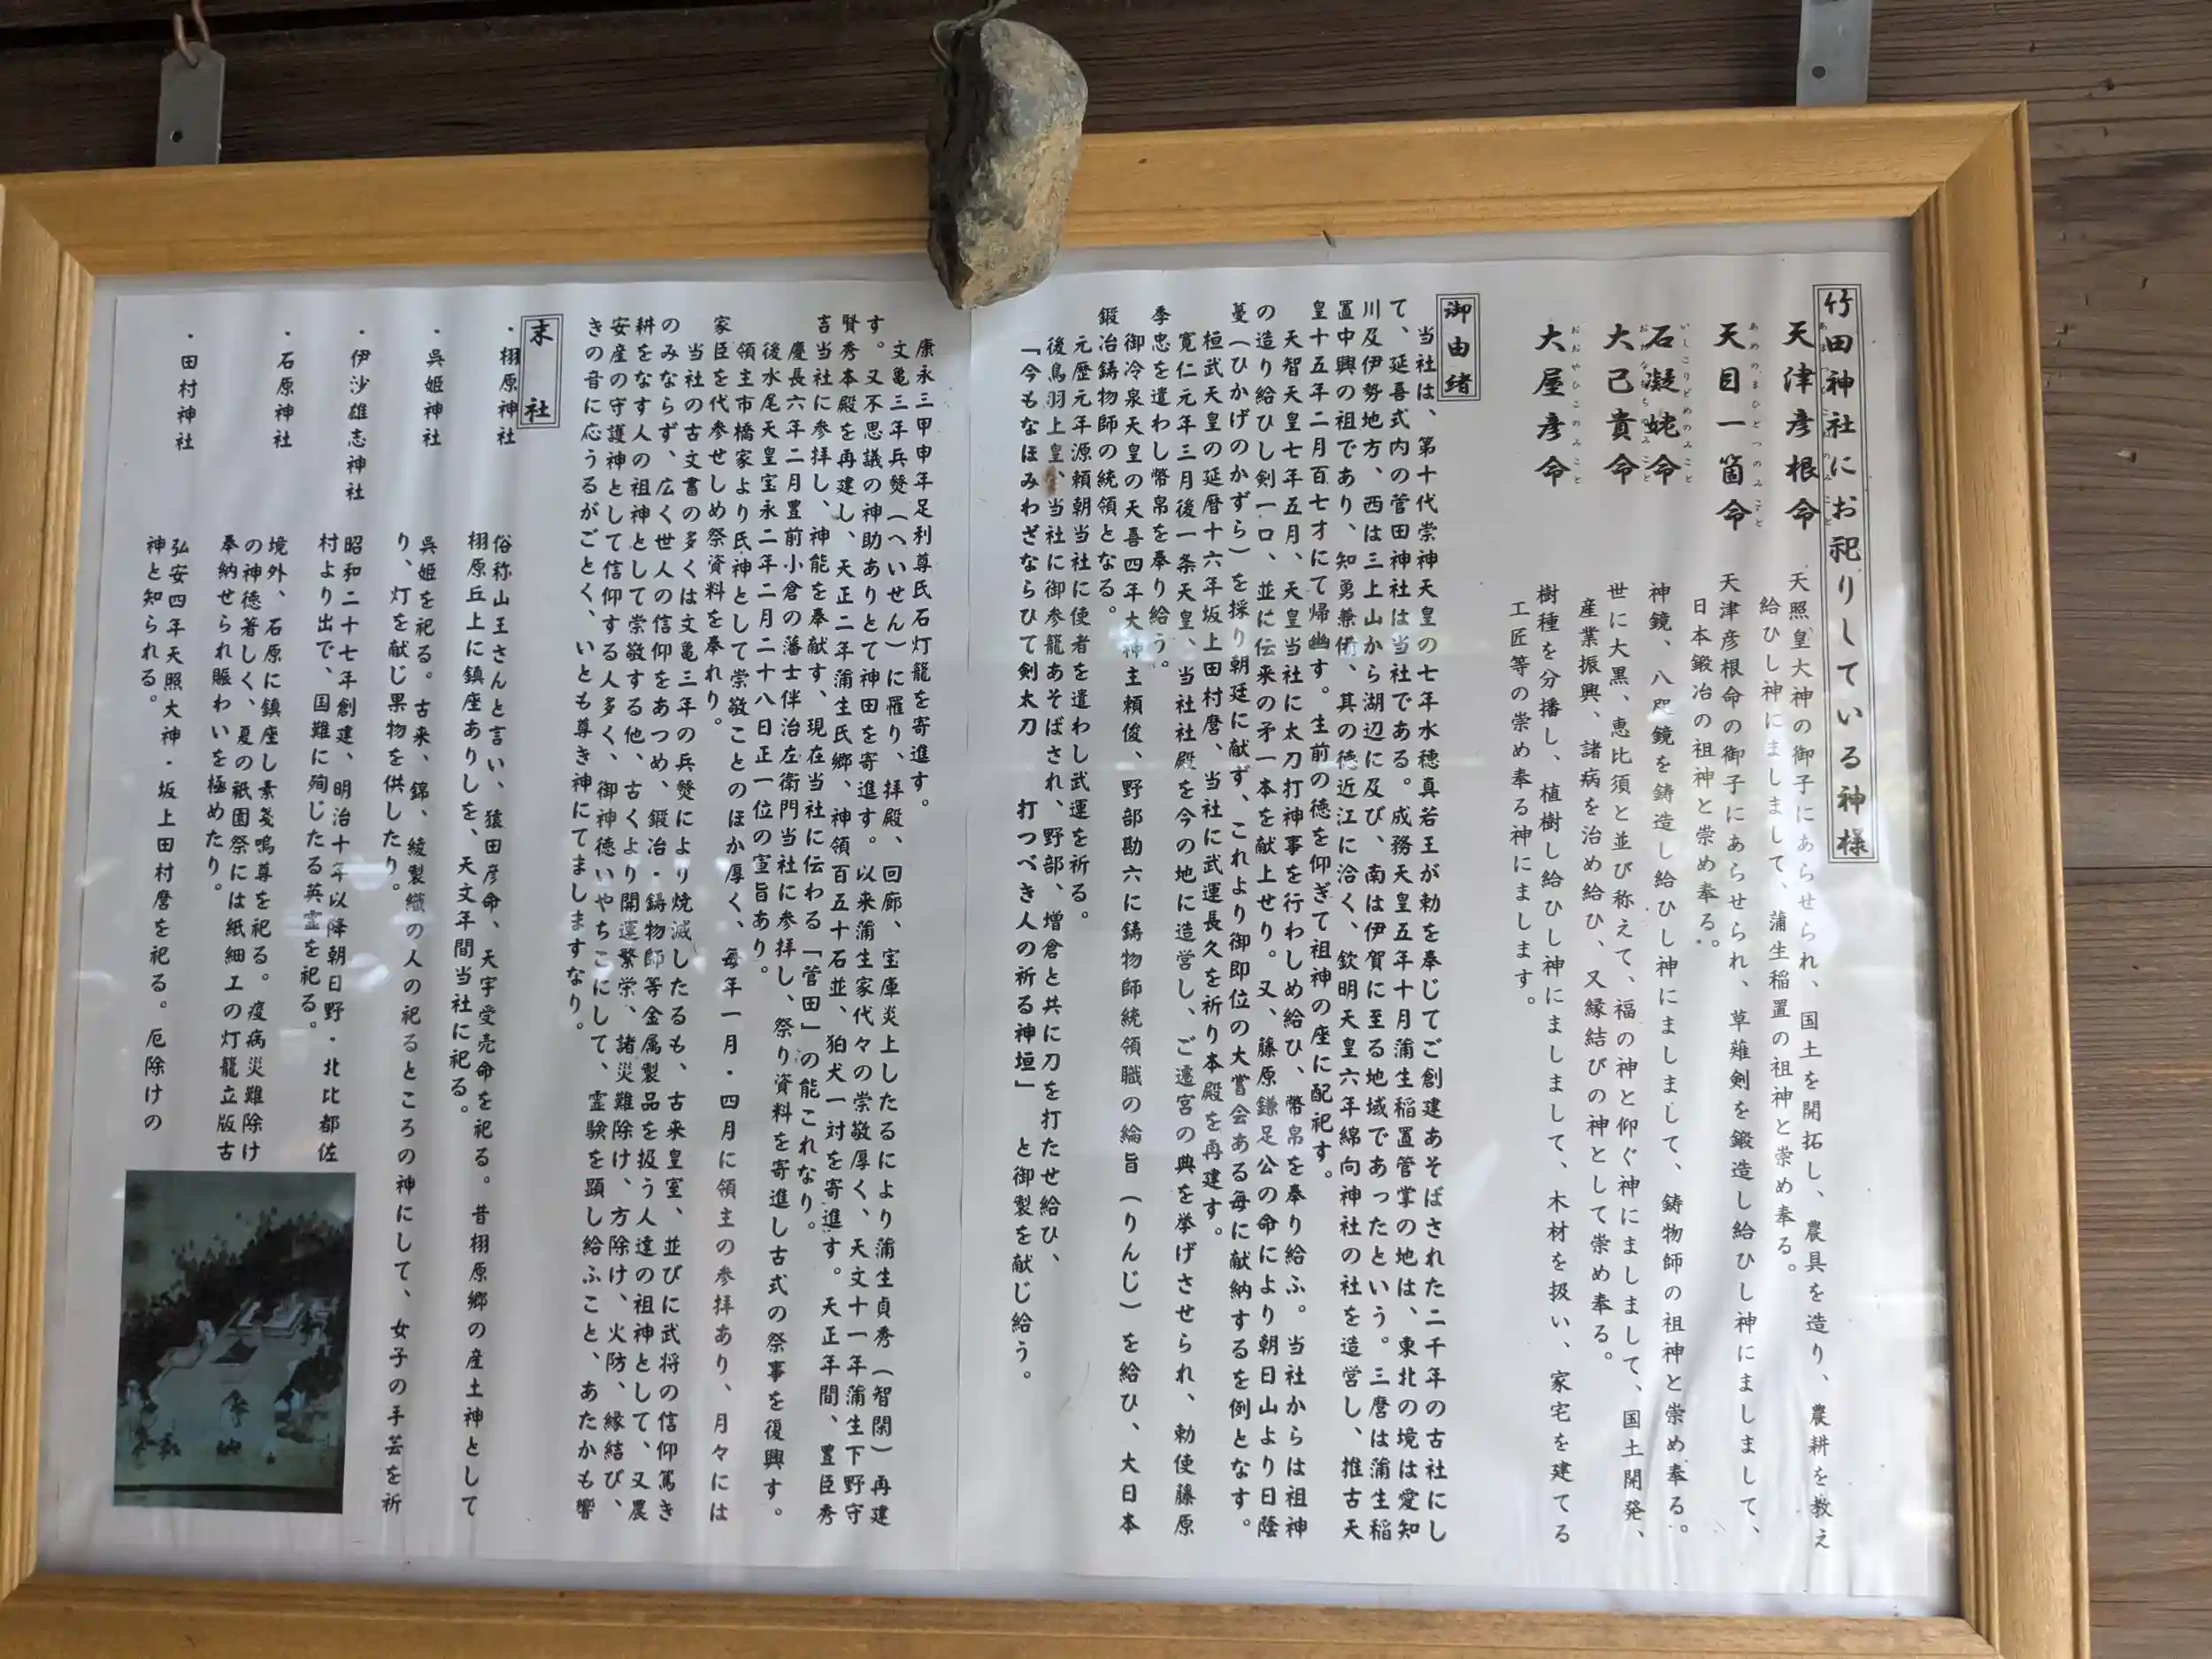 竹田神社にお祀りしている神様
天津彦根命
あまつひこねのみこと
天照皇大神の御子にあらせられ、国土を開拓し、農具を造り、農耕を教え
給ひし神にましまして、蒲生稲置の祖神と崇め奉る。
天目一箇命
あめのまひとつのみこと
天津彦根命の御子にあらせられ、草薙剣を鍛造し給ひし神にましまして、
日本鍛冶の祖神と崇め奉る。
石凝姥命
いしこりどめのみこと
神鏡、八咫鏡を鋳造し給ひし神にましまして、鋳物師の祖神と崇め奉る。
大己貴命
おおなむちのみこと
世に大黒、恵比須と並び称えて、福の神と仰ぐ神にましまして、国土開発、
産業振興、諸病を治め給ひ、又縁結びの神として崇め奉る。
大屋彦命
おおやひこのみこと
樹種を分播し、植樹し給ひし神にましまして、木材を扱い、家宅を建てる
工匠等の崇め奉る神にまします。
御由緒
当社は、第十代崇神天皇の七年水穂真若王が勅を奉じてご創建あそばされた二千年の古社にし
て、延喜式内の菅田神社は当社である。成務天皇五年十月蒲生稲置管掌の地は、東北の境は愛知
川及伊勢地方、西は三上山から湖辺に及び、南は伊賀に至る地域であったという。三麿は蒲生稲
置中興の祖であり、知勇兼備、其の徳近江に洽く、欽明天皇六年綿向神社の社を造営し、推古天
皇十五年二月百七才にて帰幽す。生前の徳を仰ぎて祖神の座に配祀す。
天智天皇七年五月、天皇当社に太刀打神事を行わしめ給ひ、幣帛を奉り給ふ。当社からは祖神
の造り給ひし剣一口、並に伝来の矛一本を献上せり。又、藤原鎌足公の命により朝日山より日蔭
蔓（ひかげのかずら）を採り朝廷に献ず、これより御即位の大嘗会ある毎に献納するを例となす。
桓武天皇の延暦十六年坂上田村麿、当社に武運長久を祈り本殿を再建す。
寛仁元年三月後一条天皇、当社社殿を今の地に造営し、ご遷宮の典を挙げさせられ、勅使藤原
季忠を遣わし幣帛を奉り給う。
御冷泉天皇の天喜四年大神主頼俊、野部勘六に鋳物師統領職の綸旨（りんじ）を給ひ、大日本
鍛冶鋳物師の統領となる。
元歴元年源頼朝当社に使者を遣わし武運を祈る。
後鳥羽上皇、当社に御参籠あそばされ、野部、増倉と共に刀を打たせ給ひ、
「今もなほみわざならひて剣太刀　打つべき人の祈る神垣」と御製を献じ給う。
康永三甲申年足利尊氏石灯籠を寄進す。
文亀三年兵燹（へいせん）に罹り、拝殿、回廊、宝庫炎上したるにより蒲生貞秀（智閑）再建
す。又不思議の神助ありとて神田を寄進す。以来蒲生家代々の崇敬厚く、天文十一年蒲生下野守
賢秀本殿を再建し、天正二年蒲生氏郷、神領百五十石並、狛犬一対を寄進す。天正年間、豊臣秀
吉当社に参拝し、神能を奉献す、現在当社に伝わる「菅田」の能これなり。
慶長六年二月豊前小倉の藩士伴治左衛門当社に参拝し、祭り資料を寄進し古式の祭事を復興す。
後水尾天皇宝永二年二月二十八日正一位の宣旨あり。
領主市橋家より氏神として崇敬ことのほか厚く、毎年一月・四月に領主の参拝あり、月々には
家臣を代参せしめ祭資料を奉れり。
当社の古文書の多くは文亀三年の兵燹により焼滅したるも、古来皇室、並びに武将の信仰篤き
のみならず、広く世人の信仰をあつめ、鍛冶・鋳物師等金属製品を扱う人達の祖神として、又農
耕をなす人の祖神として崇敬する他、古くより開運繁栄、諸災難除け、方除け、火防、縁結び、
安産の守護神として信仰する人多く、御神徳いやちこにして、霊験を顕し給ふこと、あたかも響
きの音に応うるがごとく、いとも尊き神にてましますなり。
末社
・栩原神社
俗称山王さんと言い、猿田彦命、天宇受売命を祀る。昔栩原郷の産土神として
栩原丘上に鎮座ありしを、天文年間当社に祀る。
・呉姫神社
呉姫を祀る。古来、錦、綾製織の人の祀るところの神にして、女子の手芸を祈
り、灯を献じ果物を供したり。
・伊沙雄志神社
昭和二十七年創建、明治十年以降朝日野・北比都佐
村より出で、国難に殉じたる英霊を祀る。
・石原神社
境外、石原に鎮座し素戔嗚尊を祀る。疫病災難除け
の神徳著しく、夏の祇園祭には紙細工の灯籠立版古
奉納せられ賑わいを極めたり。
・田村神社
弘安四年天照大神・坂上田村麿を祀る。厄除けの
神と知られる。